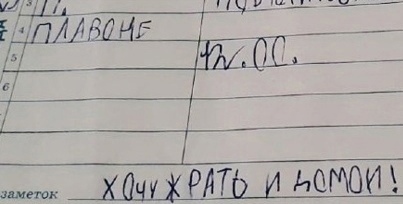 3
4 ПЛАВОНЕ
5 12.00.
6
заметок ХОЧУ ЖРАТЬ И ДОМОЙ!